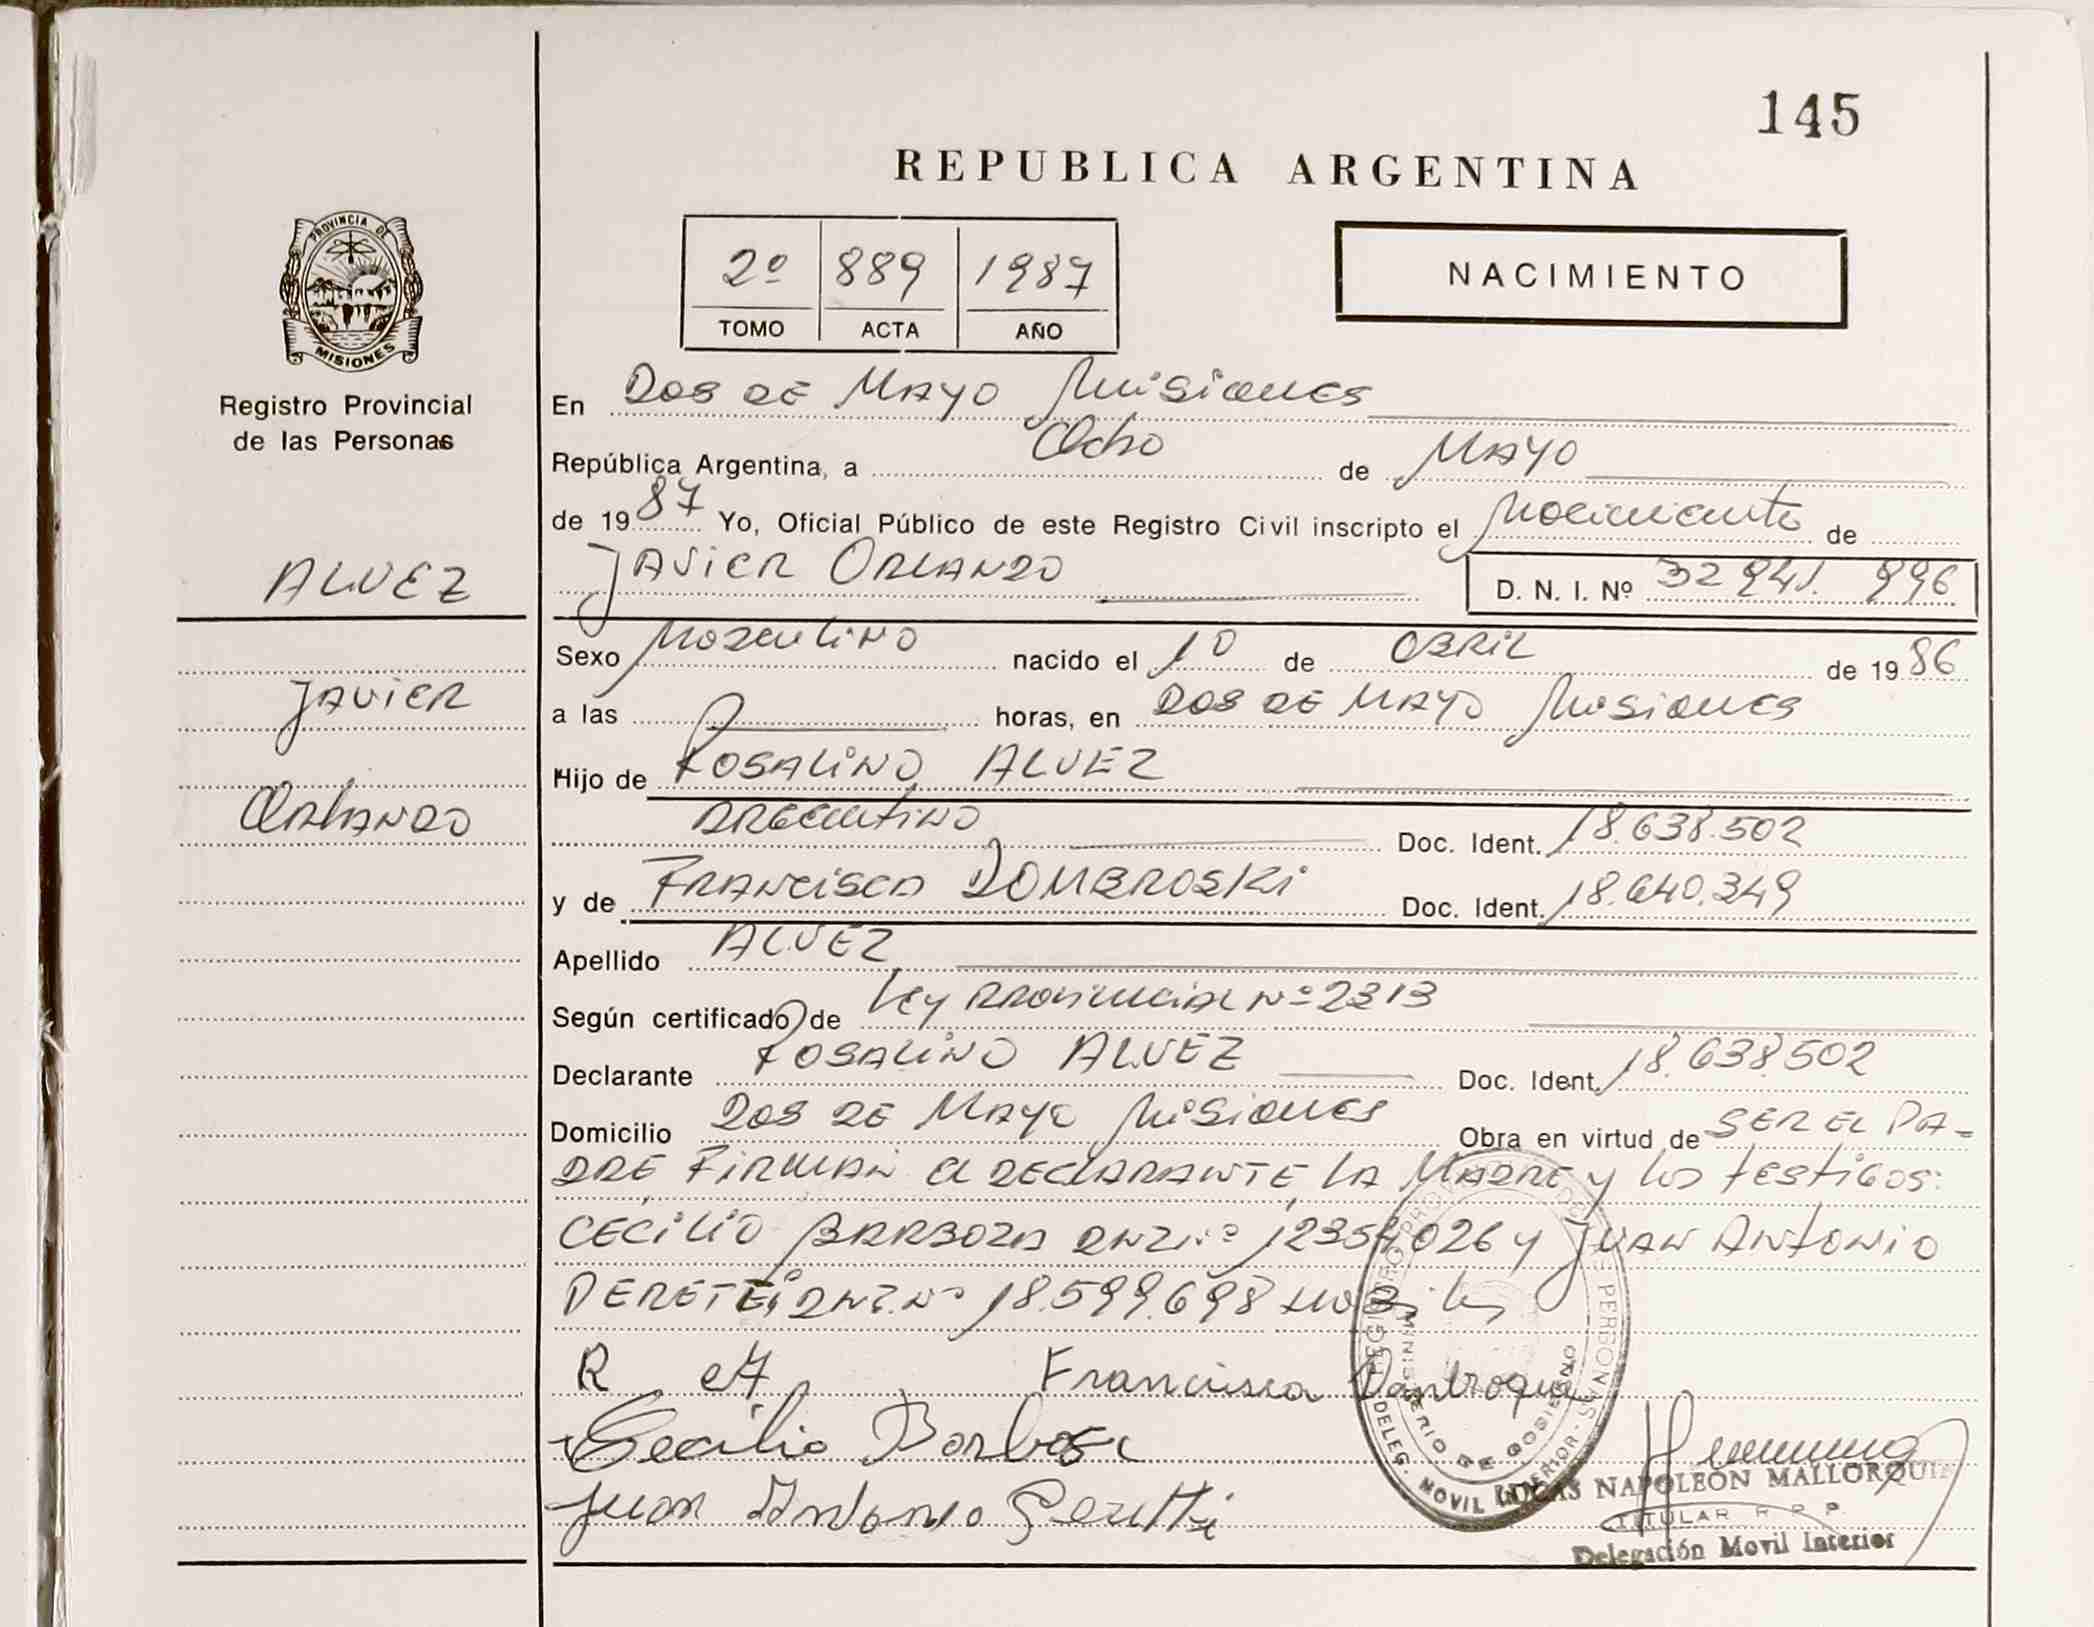 145
REPUBLICA ARGENTINA
PROVINCIA DE
MISIONES
Registro Provincial
de las Personas
2º 889 1987
TOMO ACTA AÑO
NACIMIENTO
En Dos de Mayo Misiones
República Argentina, a Ocho de Mayo
de 1987 Yo, Oficial Público de este Registro Civil inscripto el Nacimiento de
Javier Orlando
D. N. I. Nº 32 941. 996
ALVEZ
Javier
Orlando
Sexo Masculino nacido el 10 de Abril de 1986
a las horas, en Dos de Mayo Misiones
Hijo de Rosalino ALVEZ
Argentino Doc. Ident. 18.638.502
y de Francisca DOMBROSKI Doc. Ident. 18.640.349
Apellido ALVEZ
Según certificado de Ley Provincial Nº 2313
Declarante Rosalino ALVEZ Doc. Ident. 18.638.502
Domicilio Dos de Mayo Misiones Obra en virtud de SER EL PA-
DRE Firman el declarante, la Madre y los testigos:
Cecilio Barboza 12354026 y Juan Antonio
18.599.698
R A
Francisca
Cecilio Barboza
Juan Antonio
MINISTERIO DE GOBIERNO
DELEG. MOVIL INTERIOR
LUCAS NAPOLEON MALLORQUIN
TITULAR R. P. P.
Delegación Movil Interior